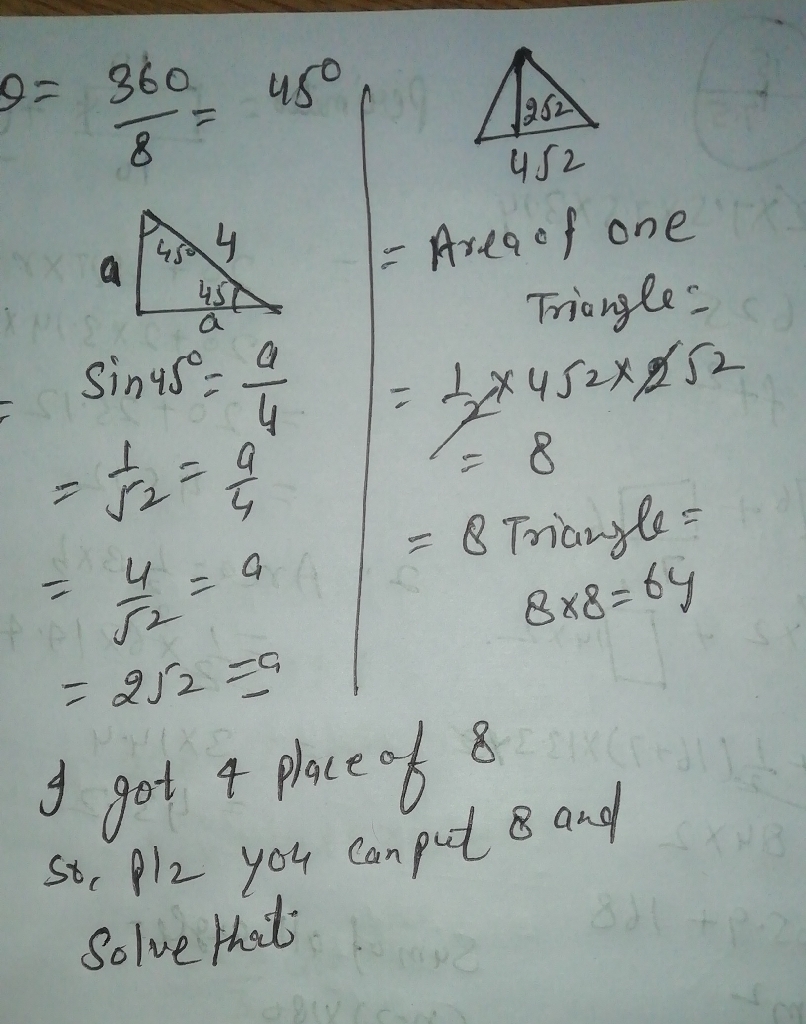 θ = 360/8 = 45°
a 45° 4
45
a
= Sin45° = a/4
= 1/√2 = a/4
= 4/√2 = a
= 2√2 = a
2√2
4√2
= Area of one
Triangle =
= 1/2 × 4√2 × 2√2
= 8
= 8 Triangle =
8×8=64
I got 4 place of 8
so, plz you can put 8 and
Solve that